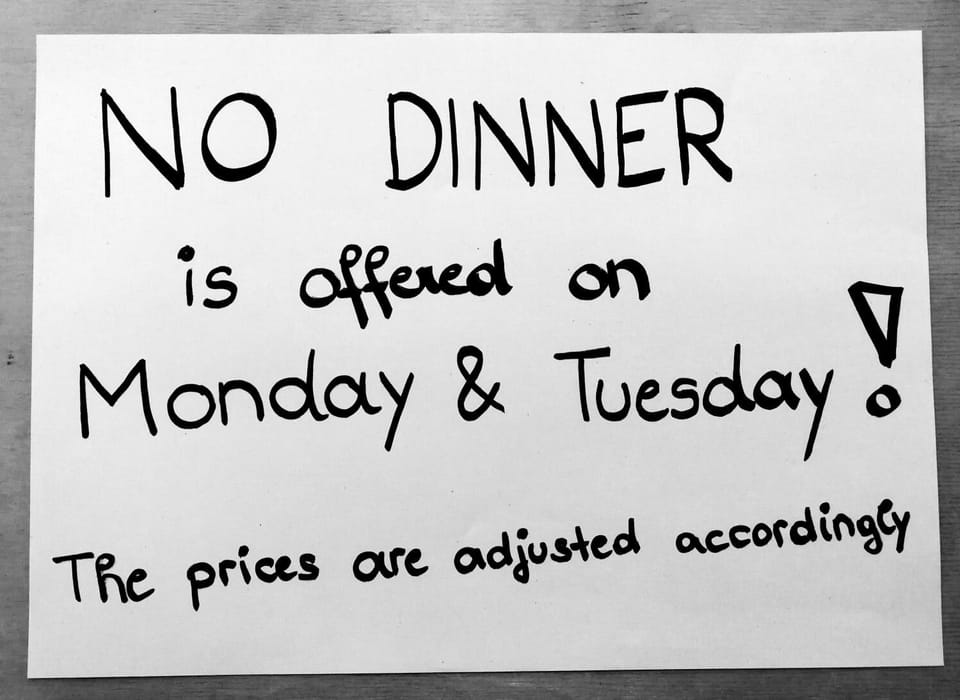 NO DINNER
is offered on
Monday & Tuesday!
The prices are adjusted accordingly